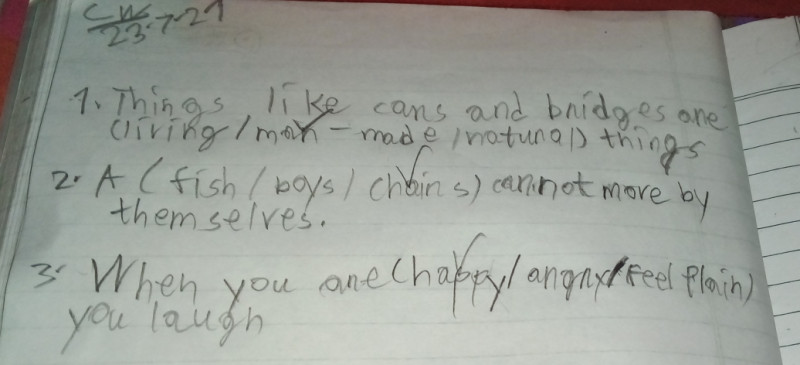 CW
23.7.21
1. Things like cans and bridges are
(living/man-made/natural) things
2. A (fish/boys/chains) cannot move by
themselves.
3. When you are (happy/angry/feel plain)
you laugh